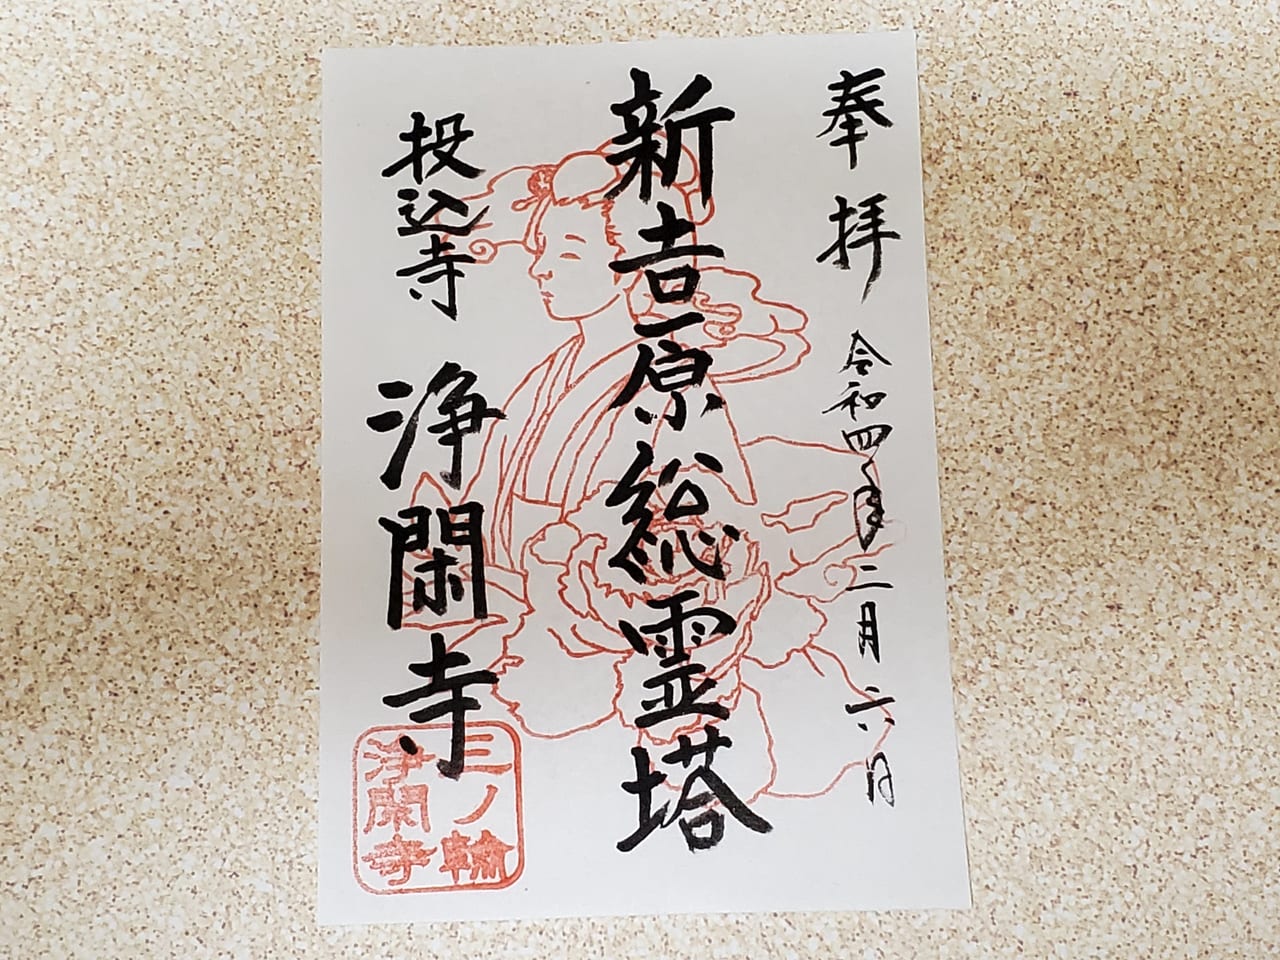 奉拝 令和四年二月六日
新吉原総霊塔
投込寺 浄閑寺
三ノ輪
浄閑寺